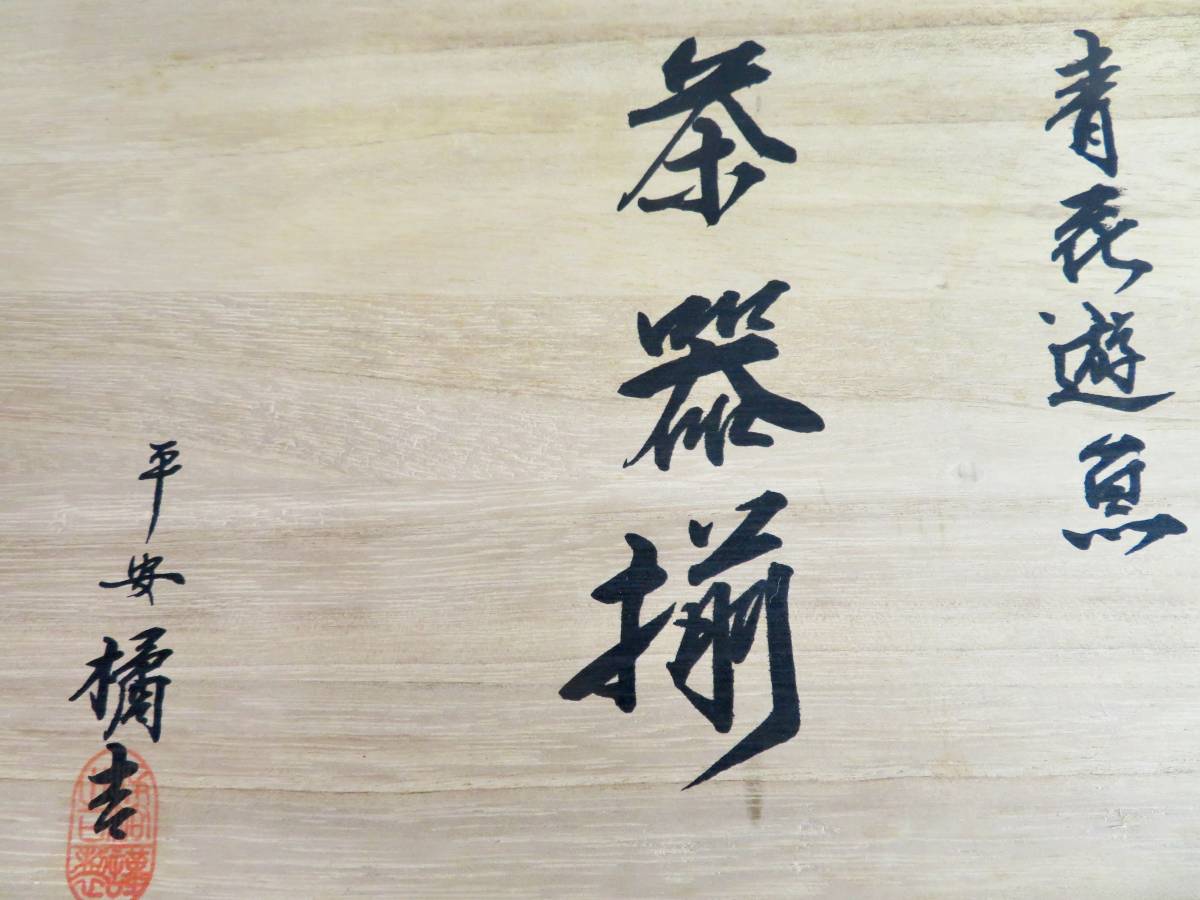 青花遊魚
茶器揃
平安 橘吉